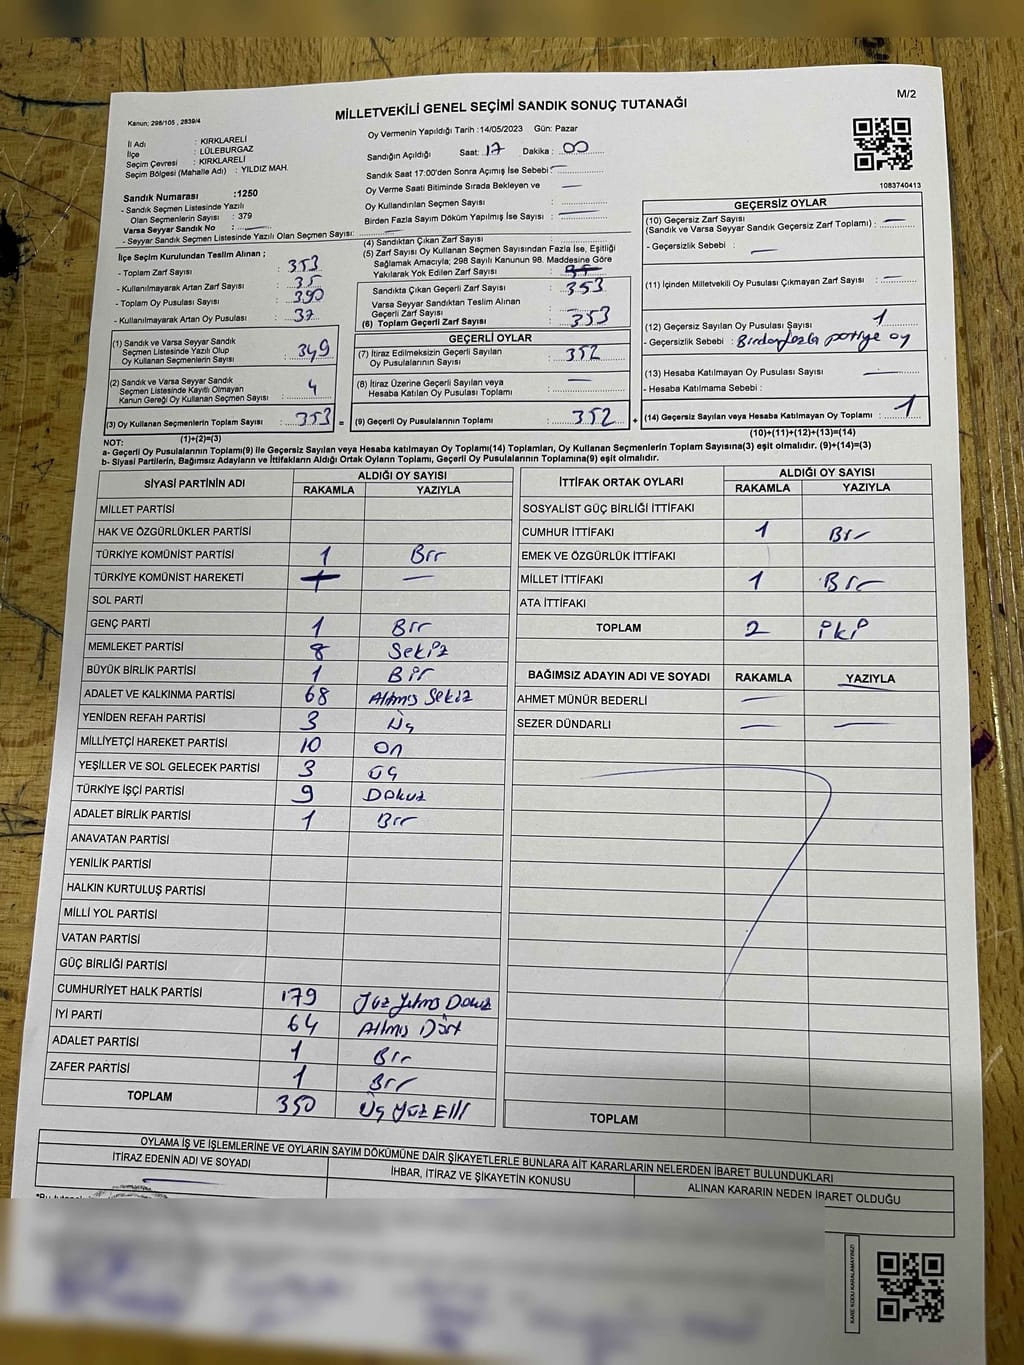 M/2
MİLLETVEKİLİ GENEL SEÇİMİ SANDIK SONUÇ TUTANAĞI
Kanun; 298/105 , 2839/4
Oy Vermenin Yapıldığı Tarih :14/05/2023 Gün: Pazar
İl Adı : KIRKLARELİ
İlçe : LÜLEBURGAZ
Seçim Çevresi : KIRKLARELİ
Seçim Bölgesi (Mahalle Adı) : YILDIZ MAH.
Sandığın Açıldığı Saat: 17 Dakika : 00
Sandık Saat 17:00'den Sonra Açımış İse Sebebi: —
Oy Verme Saati Bitiminde Sırada Bekleyen ve —
Oy Kullandırılan Seçmen Sayısı
Birden Fazla Sayım Döküm Yapılmış İse Sayısı : —
1083740413
Sandık Numarası :1250
- Sandık Seçmen Listesinde Yazılı
Olan Seçmenlerin Sayısı : 379
Varsa Seyyar Sandık No : —
- Seyyar Sandık Seçmen Listesinde Yazılı Olan Seçmen Sayısı: —
İlçe Seçim Kurulundan Teslim Alınan ;
- Toplam Zarf Sayısı : 353
- Kullanılmayarak Artan Zarf Sayısı : 35
- Toplam Oy Pusulası Sayısı : 390
- Kullanılmayarak Artan Oy Pusulası : 37
(1) Sandık ve Varsa Seyyar Sandık
Seçmen Listesinde Yazılı Olup
Oy Kullanan Seçmenlerin Sayısı : 349
(2) Sandık ve Varsa Seyyar Sandık
Seçmen Listesinde Kayıtlı Olmayan
Kanun Gereği Oy Kullanan Seçmen Sayısı : 4
(3) Oy Kullanan Seçmenlerin Toplam Sayısı : 353 =
(1)+(2)=(3)
(4) Sandıktan Çıkan Zarf Sayısı :
(5) Zarf Sayısı Oy Kullanan Seçmen Sayısından Fazla İse, Eşitliği
Sağlamak Amacıyla; 298 Sayılı Kanunun 98. Maddesine Göre
Yakılarak Yok Edilen Zarf Sayısı :
Sandıkta Çıkan Geçerli Zarf Sayısı : 353
Varsa Seyyar Sandıktan Teslim Alınan
Geçerli Zarf Sayısı :
(6) Toplam Geçerli Zarf Sayısı : 353
GEÇERLİ OYLAR
(7) İtiraz Edilmeksizin Geçerli Sayılan
Oy Pusulalarının Sayısı : 352
(8) İtiraz Üzerine Geçerli Sayılan veya
Hesaba Katılan Oy Pusulası Toplamı : —
(9) Geçerli Oy Pusulalarının Toplamı : 352 +
GEÇERSİZ OYLAR
(10) Geçersiz Zarf Sayısı
(Sandık ve Varsa Seyyar Sandık Geçersiz Zarf Toplamı) : —
- Geçersizlik Sebebi : —
(11) İçinden Milletvekili Oy Pusulası Çıkmayan Zarf Sayısı : —
(12) Geçersiz Sayılan Oy Pusulası Sayısı : 1
- Geçersizlik Sebebi : Birden fazla partiye oy
(13) Hesaba Katılmayan Oy Pusulası Sayısı : —
- Hesaba Katılmama Sebebi :
(14) Geçersiz Sayılan veya Hesaba Katılmayan Oy Toplamı : 1
(10)+(11)+(12)+(13)=(14)
NOT:
a- Geçerli Oy Pusulalarının Toplamı(9) ile Geçersiz Sayılan veya Hesaba katılmayan Oy Toplamı(14) Toplamları, Oy Kullanan Seçmenlerin Toplam Sayısına(3) eşit olmalıdır. (9)+(14)=(3)
b- Siyasi Partilerin, Bağımsız Adayların ve İttifakların Aldığı Ortak Oyların Toplamı, Geçerli Oy Pusulalarının Toplamına(9) eşit olmalıdır.
SİYASİ PARTİNİN ADI ALDIĞI OY SAYISI
RAKAMLA YAZIYLA
MİLLET PARTİSİ
HAK VE ÖZGÜRLÜKLER PARTİSİ
TÜRKİYE KOMÜNİST PARTİSİ 1 Bir
TÜRKİYE KOMÜNİST HAREKETİ —
SOL PARTİ
GENÇ PARTİ 1 Bir
MEMLEKET PARTİSİ 8 Sekiz
BÜYÜK BİRLİK PARTİSİ 1 Bir
ADALET VE KALKINMA PARTİSİ 68 Altmış Sekiz
YENİDEN REFAH PARTİSİ 3 Üç
MİLLİYETÇİ HAREKET PARTİSİ 10 On
YEŞİLLER VE SOL GELECEK PARTİSİ 3 Üç
TÜRKİYE İŞÇİ PARTİSİ 9 Dokuz
ADALET BİRLİK PARTİSİ 1 Bir
ANAVATAN PARTİSİ
YENİLİK PARTİSİ
HALKIN KURTULUŞ PARTİSİ
MİLLİ YOL PARTİSİ
VATAN PARTİSİ
GÜÇ BİRLİĞİ PARTİSİ
CUMHURİYET HALK PARTİSİ 179 Yüz Yetmiş Dokuz
İYİ PARTİ 64 Altmış Dört
ADALET PARTİSİ 1 Bir
ZAFER PARTİSİ 1 Bir
TOPLAM 350 Üç Yüz Elli
İTTİFAK ORTAK OYLARI ALDIĞI OY SAYISI
RAKAMLA YAZIYLA
SOSYALİST GÜÇ BİRLİĞİ İTTİFAKI
CUMHUR İTTİFAKI 1 Bir
EMEK VE ÖZGÜRLÜK İTTİFAKI
MİLLET İTTİFAKI 1 Bir
ATA İTTİFAKI
TOPLAM 2 iki
BAĞIMSIZ ADAYIN ADI VE SOYADI RAKAMLA YAZIYLA
AHMET MÜNÜR BEDERLİ —
SEZER DÜNDARLI — —
TOPLAM
OYLAMA İŞ VE İŞLEMLERİNE VE OYLARIN SAYIM DÖKÜMÜNE DAİR ŞİKAYETLERLE BUNLARA AİT KARARLARIN NELERDEN İBARET BULUNDUKLARI
İTİRAZ EDENİN ADI VE SOYADI İHBAR, İTİRAZ VE ŞİKAYETİN KONUSU ALINAN KARARIN NEDEN İBARET OLDUĞU
KARE KODU KARALAMAYINIZ!